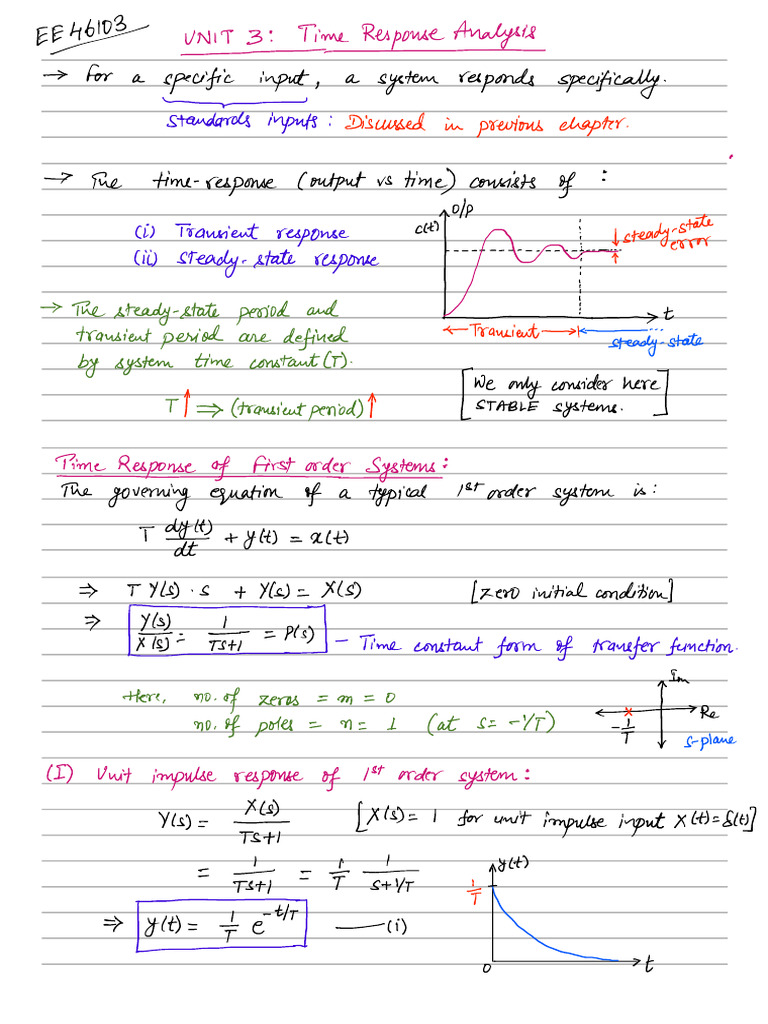 EE46103
UNIT 3: Time Response Analysis
→ For a specific input, a system responds specifically.
Standards inputs: Discussed in previous chapter.
→ The time-response (output vs time) consists of :
(i) Transient response
(ii) Steady-state response
O/P
c(t)
steady-state error
t
Transient
steady-state
→ The steady-state period and
transient period are defined
by system time constant (T).
T↑ ⇒ (transient period)↑
[We only consider here
STABLE systems.]
Time Response of First order Systems:
The governing equation of a typical 1st order system is:
T dy(t)/dt + y(t) = x(t)
⇒ T Y(s)·s + Y(s) = X(s) [zero initial condition]
⇒ Y(s)/X(s) = 1/(Ts+1) = P(s) – Time constant form of transfer function.
Here, no. of zeros = m = 0
no. of poles = n = 1 (at s = -1/T)
Im
Re
-1/T
s-plane
(I) Unit impulse response of 1st order system:
Y(s) = X(s)/(Ts+1) [X(s) = 1 for unit impulse input x(t) = δ(t)]
= 1/(Ts+1) = 1/T 1/(s+1/T)
⇒ y(t) = 1/T e^(-t/T) —— (i)
y(t)
1/T
0
t